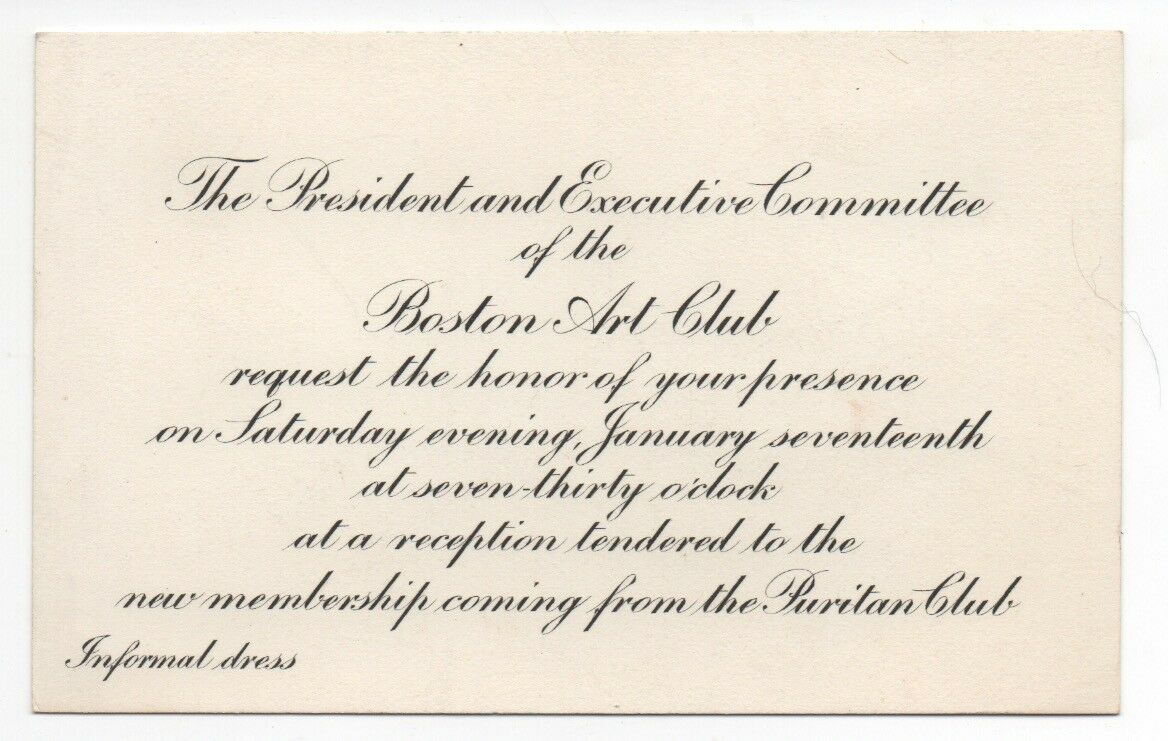 The President and Executive Committee
of the
Boston Art Club
request the honor of your presence
on Saturday evening, January seventeenth
at seven-thirty o'clock
at a reception tendered to the
new membership coming from the Puritan Club
Informal dress